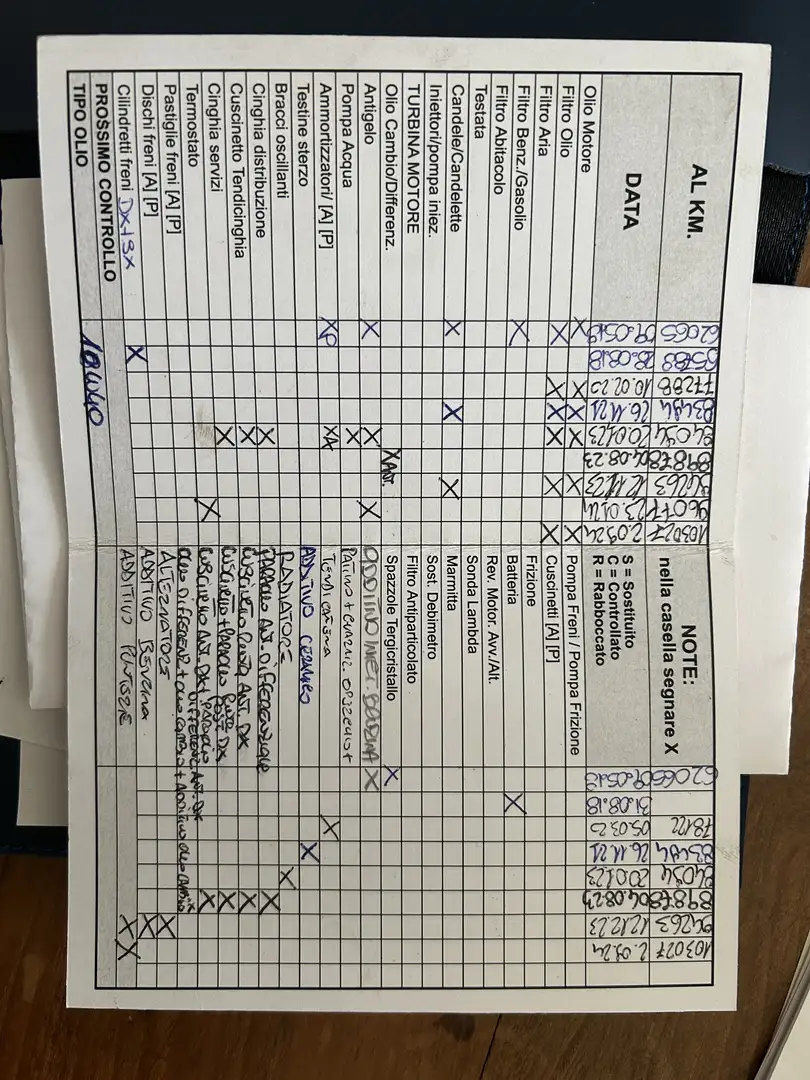 AL KM. 62065 65788 77288 83494 84094 89878 94263 96077 103027
DATA 09.05.18 28.08.18 10.02.20 26.11.21 20.01.23 04.08.23 12.12.23 23.01.24 2.09.24
Olio Motore
Filtro Olio X X X X X X
Filtro Aria X X X X X X
Filtro Benz./Gasolio X
Filtro Abitacolo
Testata
Candele/Candelette X X X
Iniettori/pompa iniez.
TURBINA MOTORE
Olio Cambio/Differenz. X ANT.
Antigelo X X X
Pompa Acqua X
Ammortizzatori/ [A] [P] XP XA
Testine sterzo
Bracci oscillanti
Cinghia distribuzione X
Cuscinetto Tendicinghia X
Cinghia servizi X
Termostato X
Pastiglie freni [A] [P]
Dischi freni [A] [P]
Cilindretti freni DX+SX X
PROSSIMO CONTROLLO
TIPO OLIO 10W40
NOTE:
nella casella segnare X
S = Sostituito
C = Controllato
R = Rabboccato
62065 78122 83494 84094 89878 94263 103027
09.05.18 31.08.18 05.03.20 26.11.21 20.01.23 04.08.23 12.12.23 2.09.24
Pompa Freni / Pompa Frizione
Cuscinetti [A] [P]
Frizione
Batteria X
Rev. Motor. Avv./Alt.
Sonda Lambda
Marmitta
Sost. Debimetro
Filtro Antiparticolato
Spazzole Tergicristallo X
ADDITIVO INIET. BENZINA X
PATTINO + GUARNIZ. OPSCELLO +
TENDICATENA X
ADDITIVO CERAMICO X
RADIATORE X
PARAOLIO ANT. DIFFERENZIALE X
CUSCINETTO RUOTA ANT. DX X
CUSCINETTO + PARAOLIO RUOTA POST. DX X
CUSCINETTO ANT. DX + PARAOLIO DIFFERENZ. ANT. DX X
OLIO DIFFERENZ. + OLIO CAMBIO + ADDITIVO OLIO CAMBIO X
ALTERNATORE X
ADDITIVO BENZINA X
ADDITIVO PUNTERIE X X